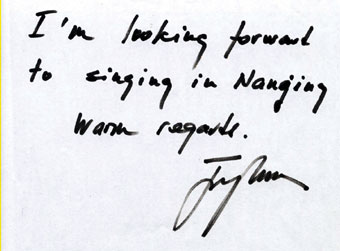 I'm looking forward
to singing in Nanjing
Warm regards.